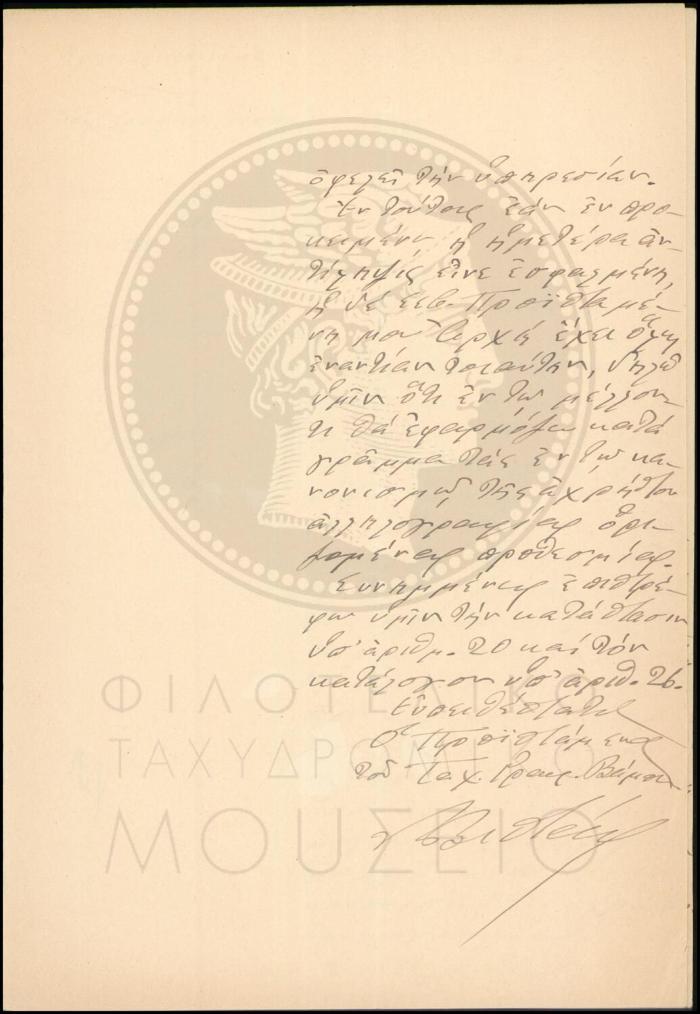 ὀφελεῖ τὴν ὑπηρεσίαν.
Ἐν τούτοις ἐὰν ἐν προ-
κειμένῳ ἡ ἡμετέρα ἀν-
τίληψις εἶνε ἐσφαλμένη,
ἡ δὲ Σεβ. Προϊσταμέ-
νη μου Ἀρχὴ ἔχει ὅλως
ἐναντίαν τοιαύτην, δηλῶ
ὑμῖν ὅτι ἐν τῷ μέλλον-
τι θὰ ἐφαρμόσω κατὰ
γράμμα τὰς ἐν τῷ κα-
νονισμῷ τῆς ἀχρήστου
ἀλληλογραφίας ὁρι-
ζομένας προθεσμίας.
Συνημμένως ἐπιστρέ-
φω ὑμῖν τὴν κατάστασιν
ὑπ' ἀριθμ. 20 καὶ τὸν
κατάλογον ὑπ' ἀριθ. 26.
Εὐπειθέστατος
Ὁ Προϊστάμενος
τοῦ Ταχ. Γραφ. Βάμου
ΦΙΛΟΤΕΛΙΚΟ
ΤΑΧΥΔΡΟΜΙΚΟ
ΜΟΥΣΕΙΟ